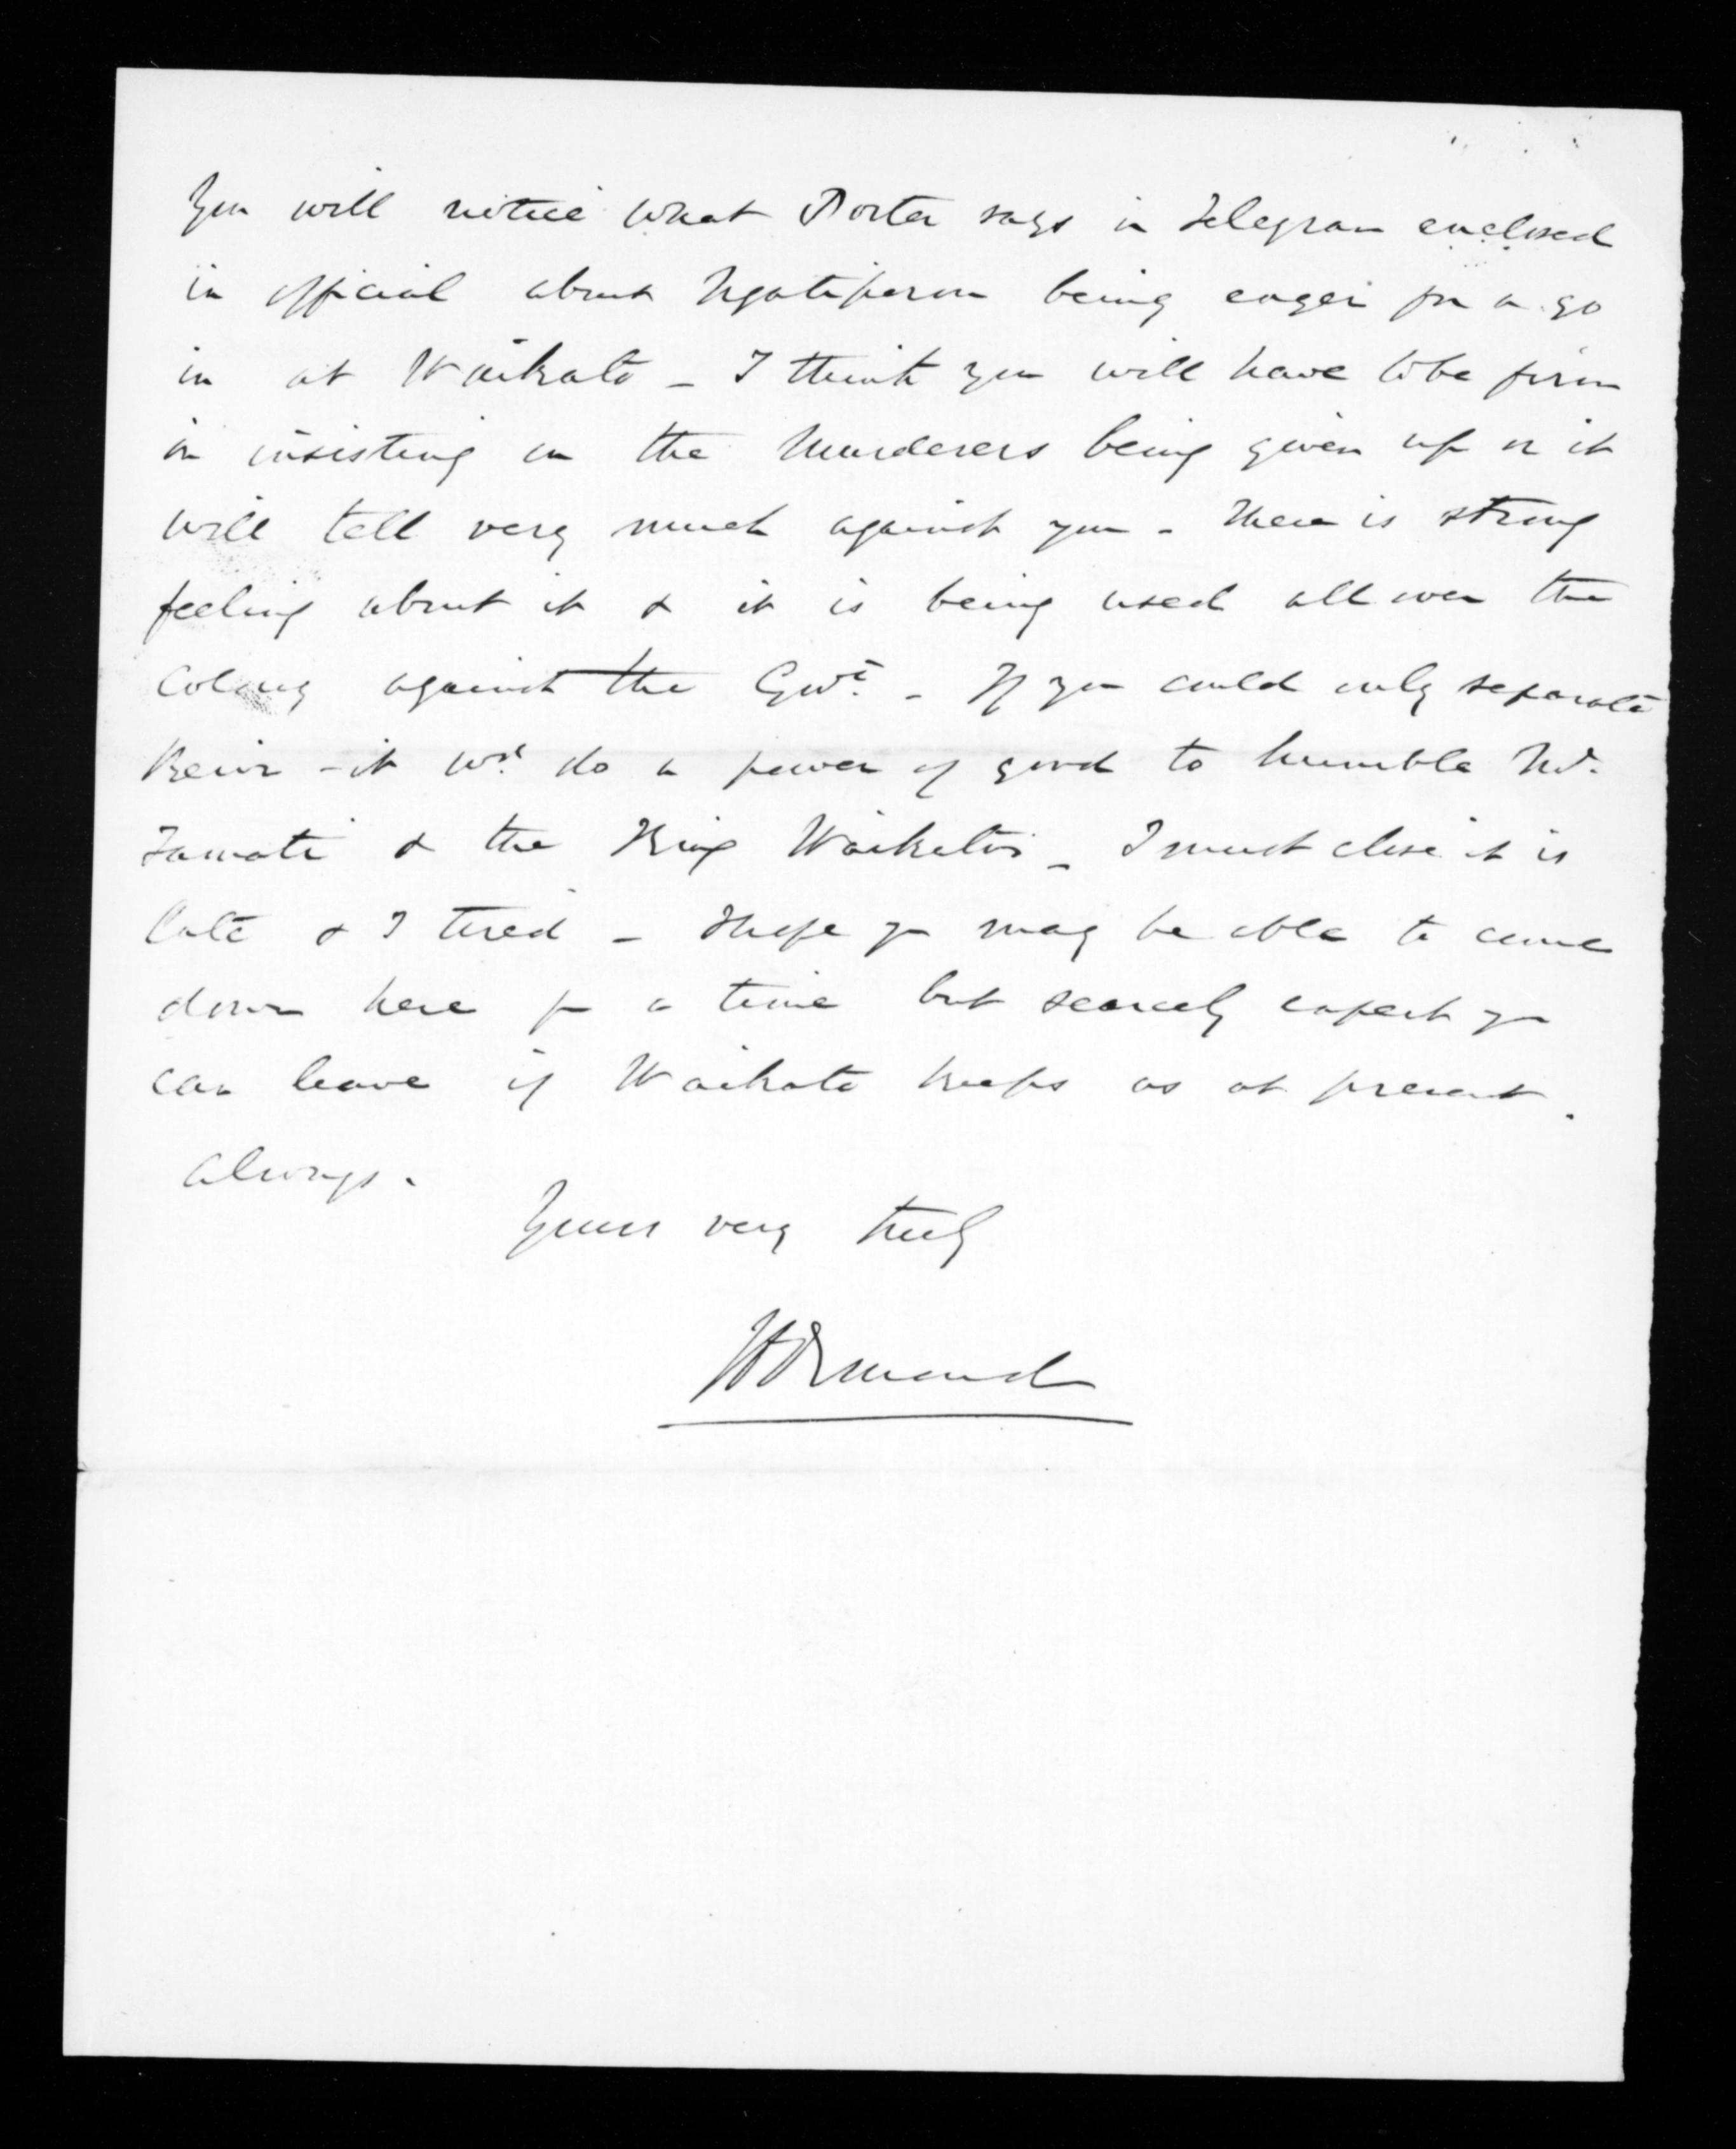 You will notice what Porter says in Telegram enclosed
in official about Ngatiporou being eager for a go
in at Waikato - I think you will have to be firm
in insisting on the Murderers being given up or it
will tell very much against you - There is strong
feeling about it & it is being used all over the
Colony against the Govt. - If you could only separate
Rewi - it wd. do a power of good to humble
Tamati & the King Waikatos - I must close it is
late & I tired - I hope you may be able to come
down here for a time but scarcely expect you
can leave if Waikato keeps as at present.
always.
Yours very truly
JDOrmond